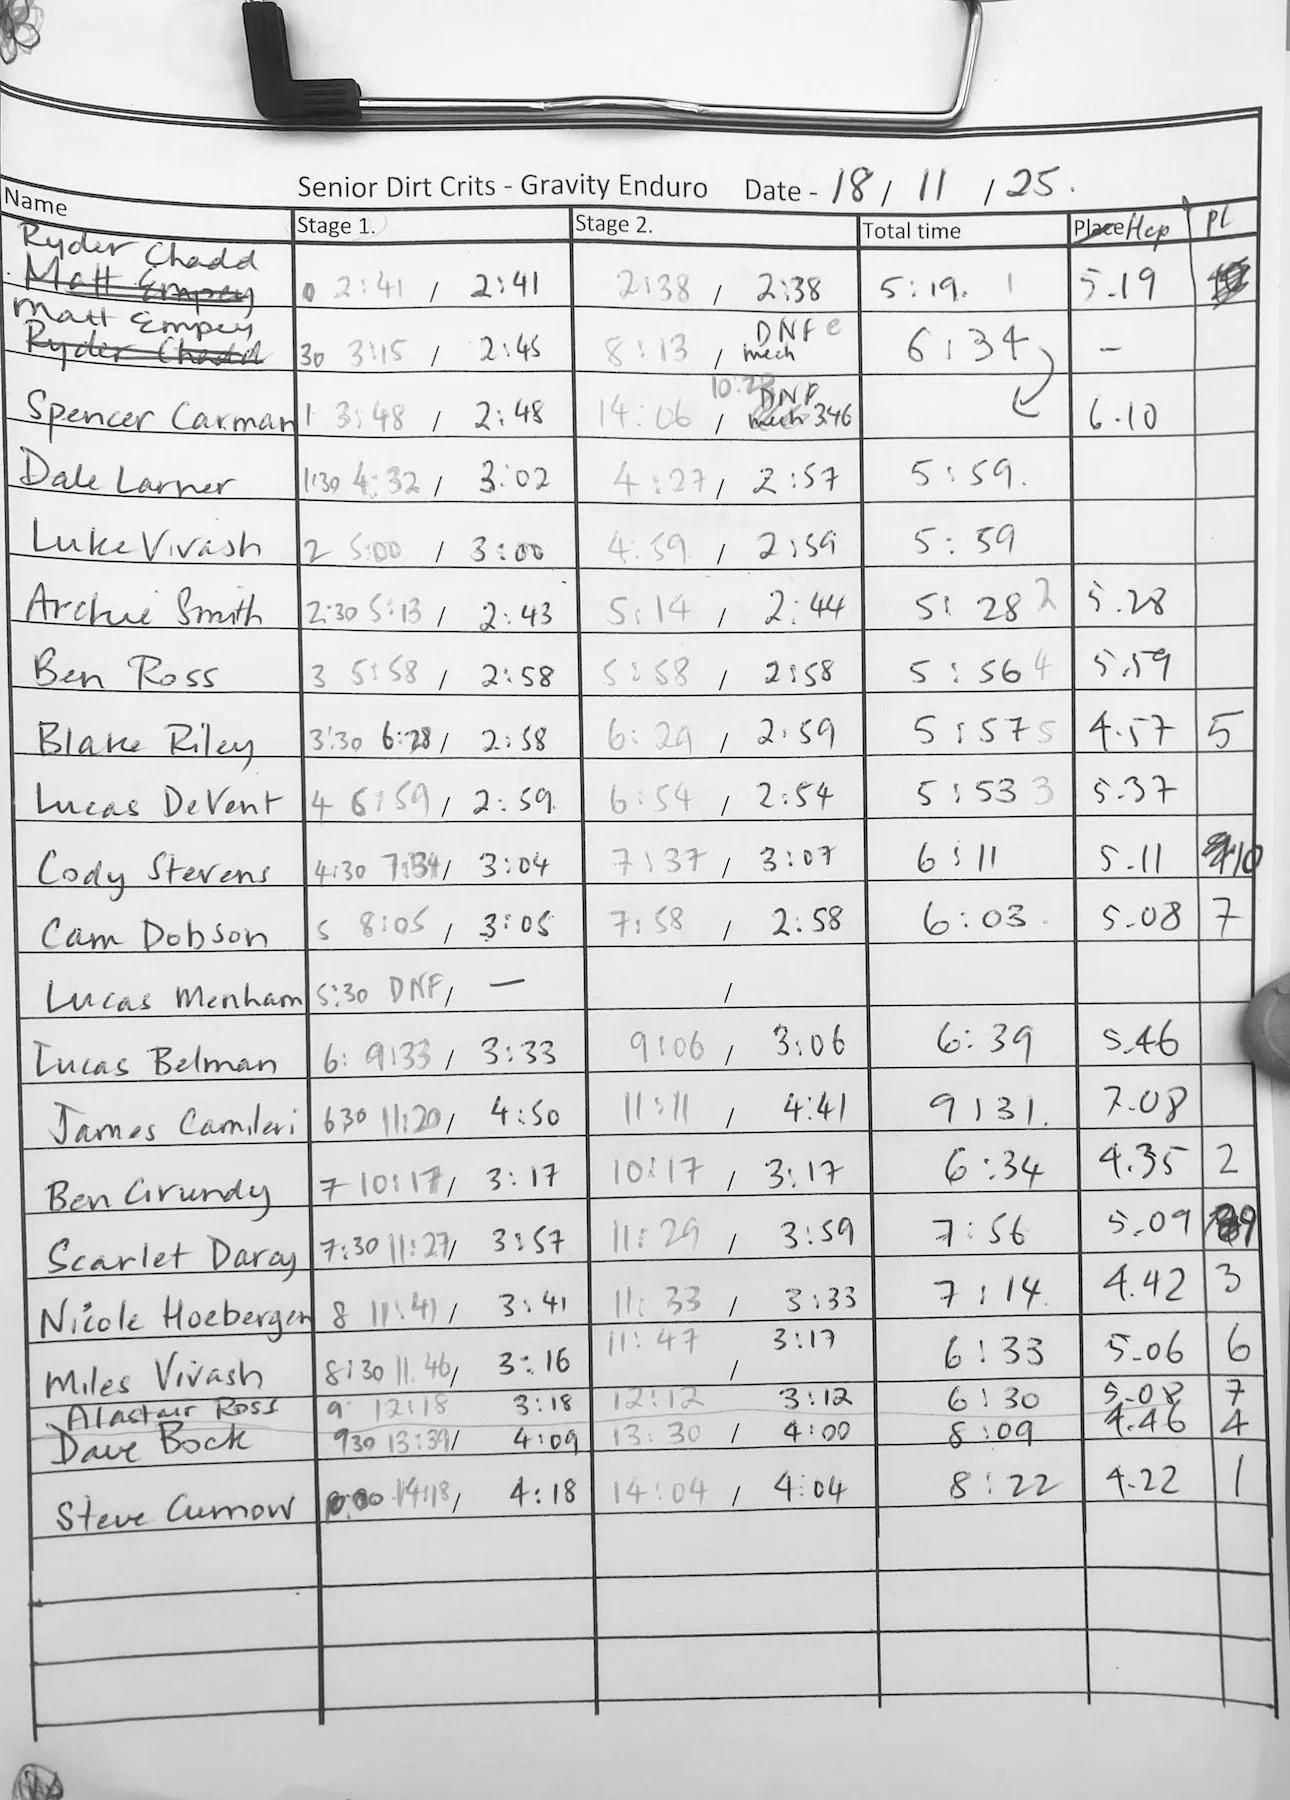 Senior Dirt Crits - Gravity Enduro Date - 18 / 11 / 25.
Name Stage 1. Stage 2. Total time Place Hcp Pl
Ryder Chadd
Matt Empey 0 2:41 / 2:41 2:38 / 2:38 5:19. 1 5.19
Matt Empey DNF e
Ryder Chadd 30 3:15 / 2:45 8:13 / mech 6:34 -
10:28 DNF
Spencer Carman 1 3:48 / 2:48 14:06 / mech 3:46 6.10
Dale Larner 1:30 4:32 / 3:02 4:27 / 2:57 5:59.
Luke Vivash 2 5:00 / 3:00 4:59 / 2:59 5:59
Archie Smith 2:30 5:13 / 2:43 5:14 / 2:44 5:28 2 5.28
Ben Ross 3 5:58 / 2:58 5:58 / 2:58 5:56 4 5.59
Blake Riley 3:30 6:28 / 2:58 6:29 / 2:59 5:57 5 4.57 5
Lucas DeVent 4 6:59 / 2:59. 6:54 / 2:54 5:53 3 5.37
Cody Stevens 4:30 7:34 / 3:04 7:37 / 3:07 6:11 5.11 10
Cam Dobson 5 8:05 / 3:05 7:58 / 2:58 6:03. 5.08 7
Lucas Menham 5:30 DNF / - /
Lucas Belman 6: 9:33 / 3:33 9:06 / 3:06 6:39 5.46
James Camileri 630 11:20 / 4:50 11:11 / 4:41 9:31. 7.08
Ben Grundy 7 10:17 / 3:17 10:17 / 3:17 6:34 4.35 2
Scarlet Darcy 7:30 11:27 / 3:57 11:29 / 3:59 7:56 5.09 9
Nicole Hoebergen 8 11:41 / 3:41 11:33 / 3:33 7:14. 4.42 3
Miles Vivash 8:30 11.46 / 3:16 11:47 / 3:17 6:33 5.06 6
Alastair Ross 9 12:18 3:18 12:12 3:12 6:30 5.08 7
Dave Bock 930 13:39 / 4:09 13:30 / 4:00 8:09 4.46 4
Steve Curnow 14:18 / 4:18 14:04 / 4:04 8:22 4.22 1